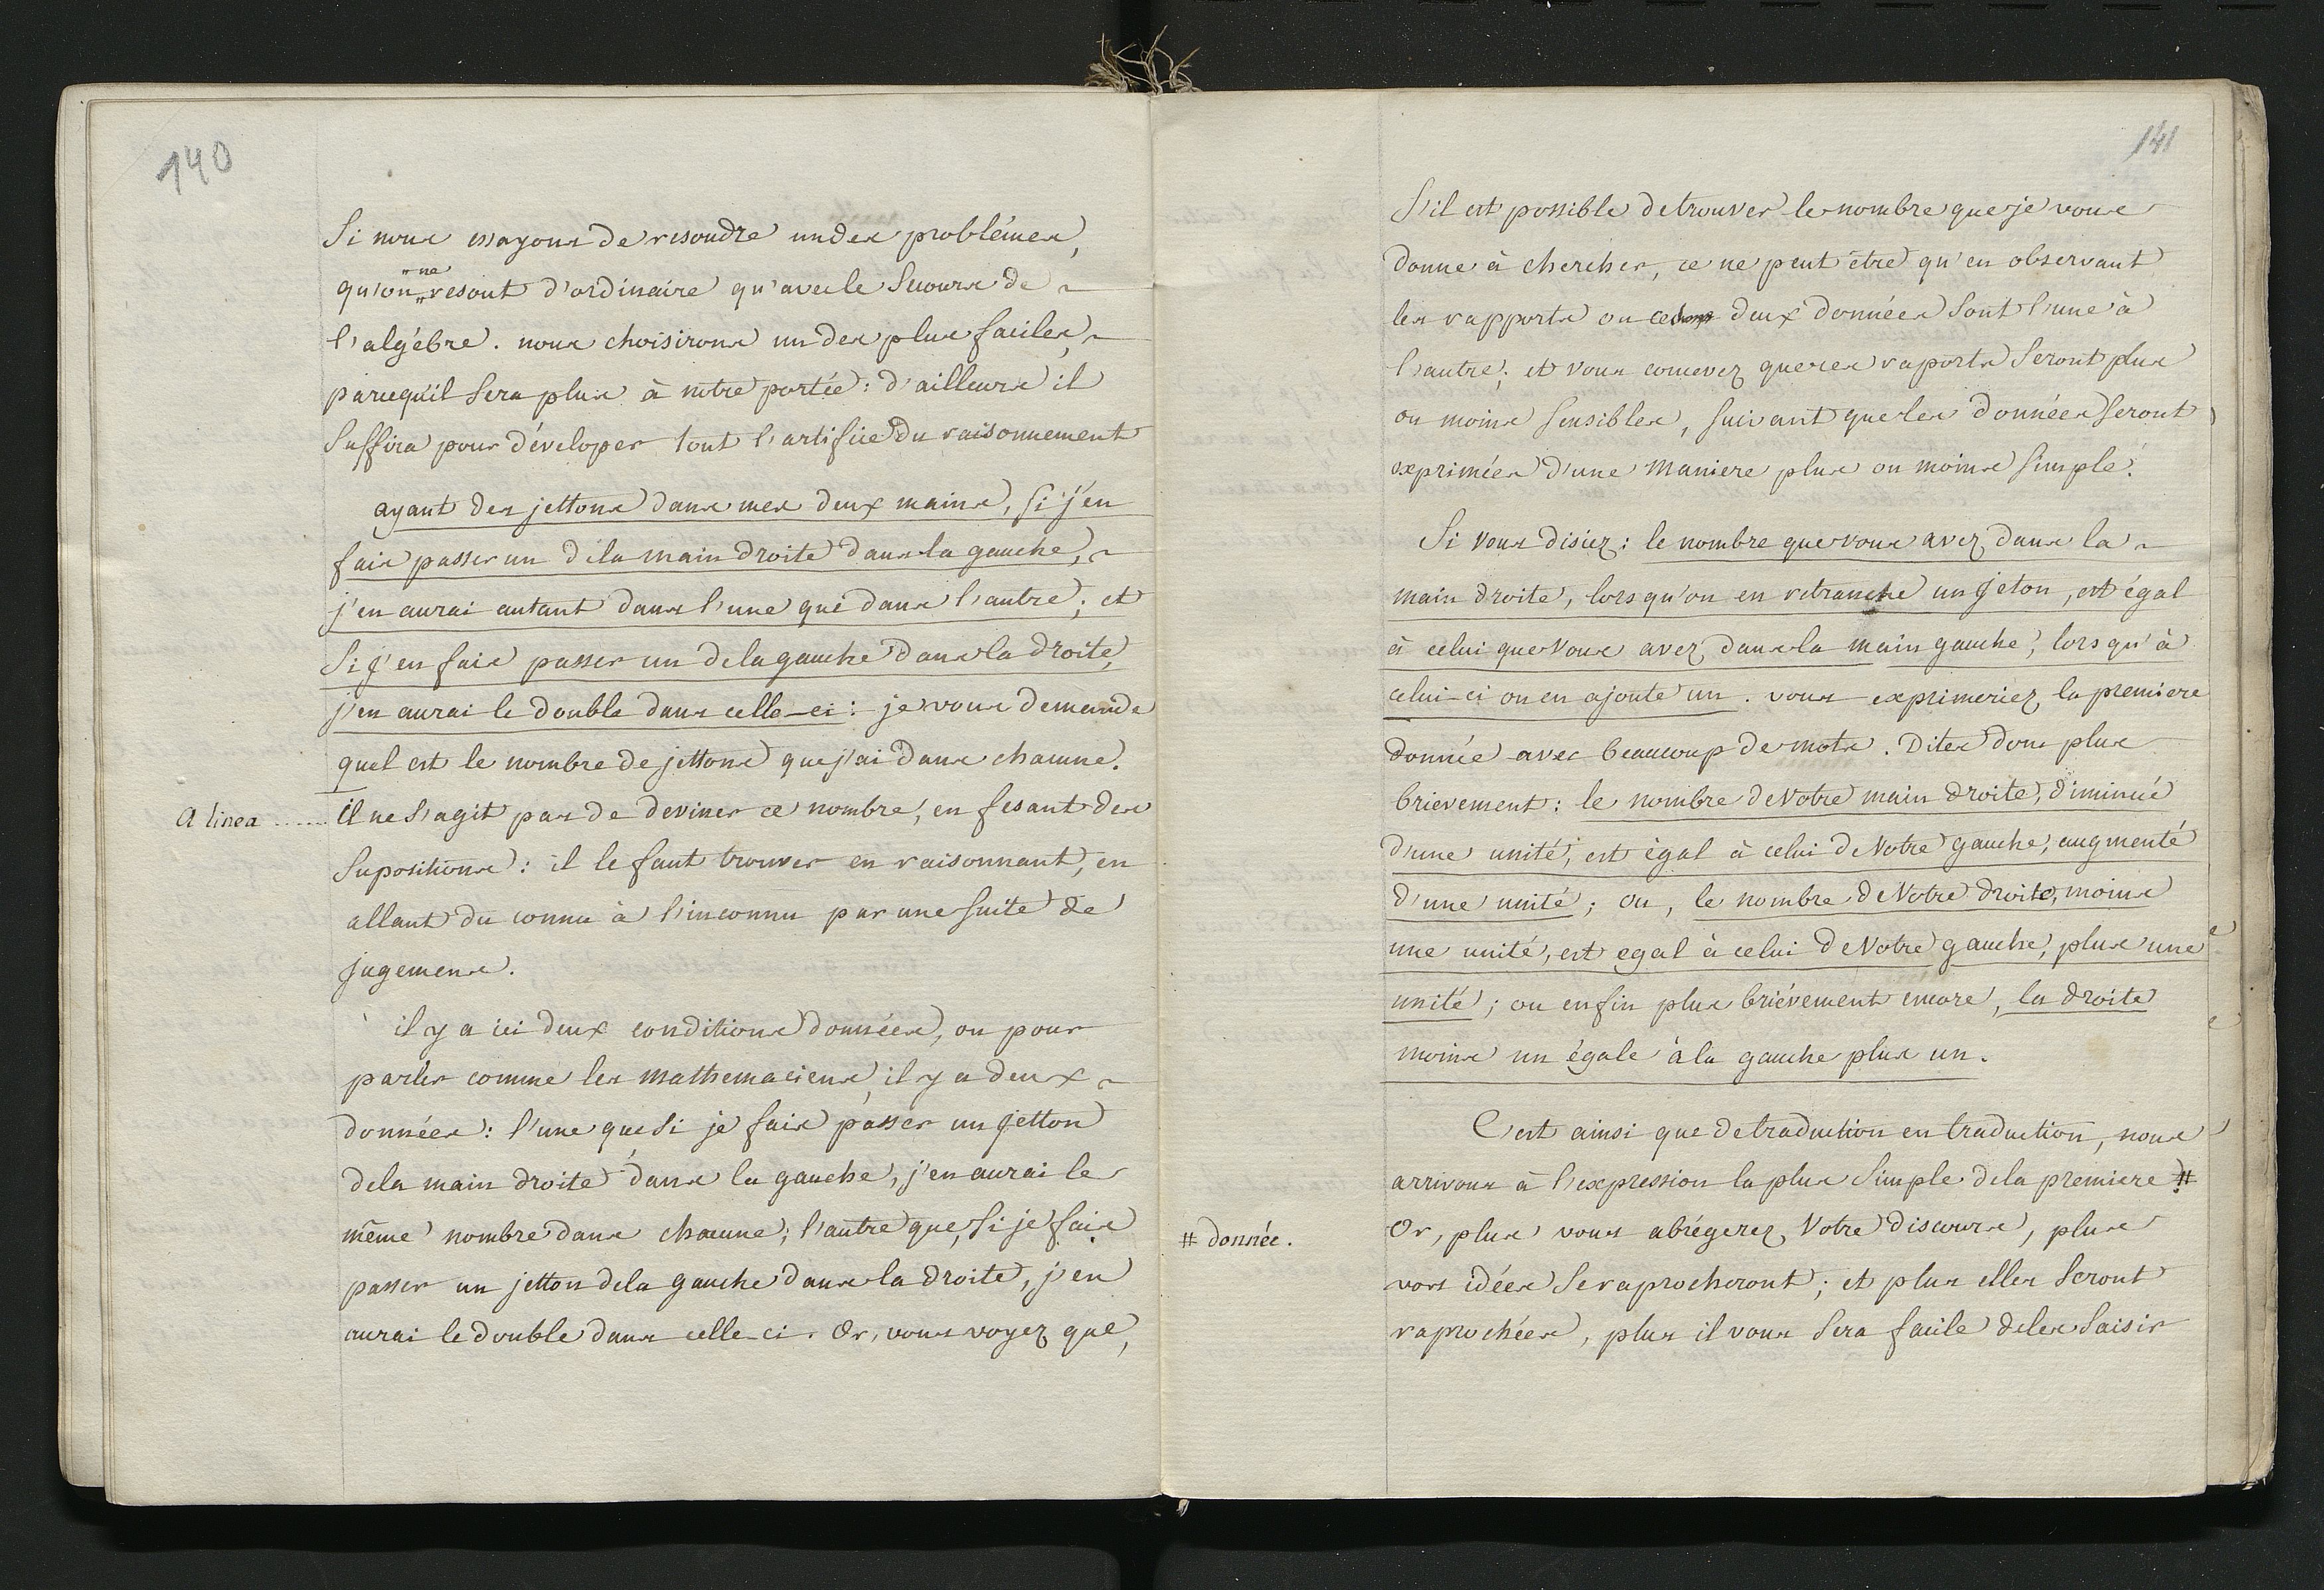 140
Si nous essayons de resoudre un des problémes,
qu'on ne resout d'ordinaire qu'avec le Secours de
l'algébre. nous choisirons un des plus faciles,
parcequ'il Sera plus à nôtre portée: d'ailleurs il
Suffira pour déveloper tout l'artifice du raisonnement
ayant des jettons dans mes deux mains, Si j'en
fais passer un de la main droite dans la gauche,
j'en aurai autant dans l'une que dans l'autre; et
Si j'en fais passer un de la gauche dans la droite,
j'en aurai le double dans celle-ci: je vous demande
quel est le nombre de jettons que j'ai dans chacune.
A linea ..... il ne S'agit pas de deviner ce nombre, en fesant des
Supositions: il le faut trouver en raisonnant, en
allant du connu à l'inconnu par une Suite de
jugemens.
il y a ici deux conditions données, ou pour
parler comme les mathemaciens, il y a deux
données: l'une que Si je fais passer un jetton
de la main droite dans la gauche, j'en aurai le
même nombre dans chacune; l'autre que, Si je fais
passer un jetton de la gauche dans la droite, j'en
aurai le double dans celle-ci. Or, vous voyez que,
141
S'il est possible de trouver le nombre que je vous
donne à chercher, ce ne peut être qu'en observant
les rapports ou ces deux données Sont l'une à
l'autre; et vous concevez que ces raports Seront plus
ou moins Sensibles, Suivant que les données Seront
exprimées d'une maniere plus ou moins Simple.
Si vous disiez: le nombre que vous avez dans la
main droite, lorsqu'on en retranche un jeton, est égal
à celui que vous avez dans la main gauche, lorsqu'à
celui-ci on en ajoute un. vous exprimeriez la premiere
donnée avec beaucoup de mots. Dites donc plus
brievement: le nombre de Votre main droite, diminué
d'une unité, est égal à celui de Votre gauche, augmenté
d'une unité; ou, le nombre de Votre droite, moins
une unité, est egal à celui de Votre gauche, plus une
unité; ou enfin plus briévement encore, la droite
moins un égale à la gauche plus un.
C'est ainsi que de traduction en traduction, nous
arrivons à l'expression la plus Simple de la premiere #
# donnée.
Or, plus vous abrégerez Votre discours, plus
vos idées Se raprocheront; et plus elles Seront
raprochées, plus il vous Sera facile de les Saisir